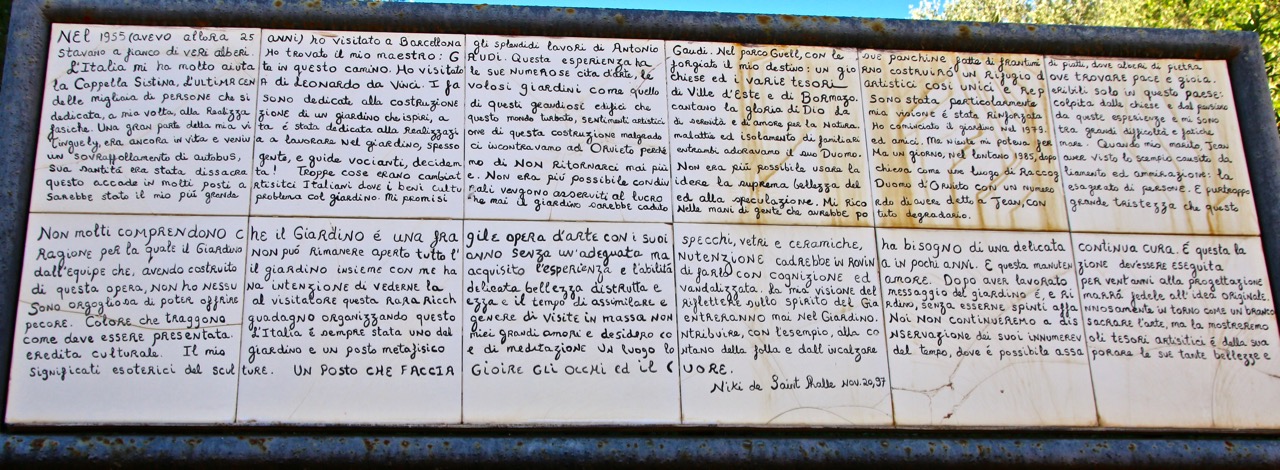 NEL 1955 (avevo allora 25 anni) ho visitato a Barcellona gli splendidi lavori di Antonio Gaudi. Nel parco Guell, con le sue panchine fatte di frantumi di piatti, dove alberi di pietra
stavano a fianco di veri alberi. Ho trovato il mio maestro: GAUDI. Questa esperienza ha forgiato il mio destino: un giorno costruiró un Rifugio dove trovare pace e gioia.
L'Italia mi ho molto aiutata in questo camino. Ho visitato le sue numerose cita d'arte, le chiese ed i varie tesori artistici così unici e reperibili solo in questo paese:
la Cappella Sistina, l'ultima cena di Leonardo da Vinci. I favolosi giardini come quello di Ville d'Este e di Bormazo. Sono stata particolarmente colpita dalle chiese e dal
delle migliaia di persone che si sono dedicate alla costruzione di questi grandiosi edifici che cantano la gloria di Dio. La mia visione é stata rinforzata da queste esperienze e mi sono
dedicata, a mia volta, alla Realizzazione di un giardino che ispiri, a questo mondo turbato, sentimenti artistici di serenità e di amore per la Natura. Ho cominciato il giardino nel 1979. tra grandi difficoltà e fatiche
fasiche. Una gran parte della mia vita é stata dedicata alla Realizzazione di questa costruzione malgrado malattie ed isolamento di familiari ed amici. Ma niente mi poteva fermare. Quando mio marito, Jean
Tinguely, era ancora in vita e veniva a lavorare nel giardino, spesso ci incontravamo ad Orvieto perché entrambi adoravamo il suo Duomo. Ma un giorno, nel lontano 1985, dopo aver visto lo scempio causato da
un sovraffollamento di autobus, gente, e guide vocianti, decidemmo di NON Ritornarci mai più Non era più possibile usare la chiesa come uno luogo di Raccogliamento ed ammirazione: la
sua santità era stata dissacrata! Troppe cose erano cambiate. Non era più possibile condividere la suprema bellezza del Duomo d'Orvieto con un numero esagerato di persone. E purtroppo
questo accade in molti posti artisitci Italiani dove i beni culturali vengono asserviti al lucro ed alla speculazione. Mi ricordo di avere detto a Jean, con grande tristezza che questo
sarebbe stato il mio più grande problema col giardino. Mi promisi che mai il giardino sarebbe caduto nelle mani di gente che avrebbe potuto degradarlo.
Non molti comprendono che il Giardino é una fragile opera d'arte con i suoi specchi, vetri e ceramiche, ha bisogno di una delicata continua cura. É questa la
Ragione per la quale il Giardino non può rimanere aperto tutto l'anno senza un'adeguata manutenzione cadrebbe in rovina in pochi anni. E questa manutenzione dev'essere eseguita
dall'equipe che, avendo costruito il giardino insieme con me ha acquisito l'esperienza e l'abilità di farlo con cognizione ed amore. Dopo aver lavorato per vent'anni alla progettazione
di questa opera, non ho nessuna intenzione di vederne la delicata bellezza distrutta e vandalizzata. La mia visione del messaggio del giardino é, e rimarrà fedele all'idea originale.
Sono orgogliosa di poter offrire al visitatore questa rara ricchezza e il tempo di assimilare e riflettere sullo spirito del Giardino, senza esserne spinti affannosamente in torno come un branco
pecore. Colore che traggono guadagno organizzando questo genere di visite in massa non entreranno mai nel Giardino. Noi non continueremo a dissacrare l'arte, ma la mostreremo
come deve essere presentata. L'Italia é sempre stata uno del miei grandi amori e desidero contribuire, con l'esempio, alla conservazione dei suoi innumerevoli tesori artistici é della sua
eredita culturale. Il mio giardino é un posto metafisico e di meditazione un luogo lontano della folla e dall'incalzare del tempo, dove é possibila assaporare le sue tante bellezze e
significati esoterici del sculture. UN POSTO CHE FACCIA GIOIRE GLI OCCHI ed il CUORE.
Niki de Saint Phalle Nov. 20, 97